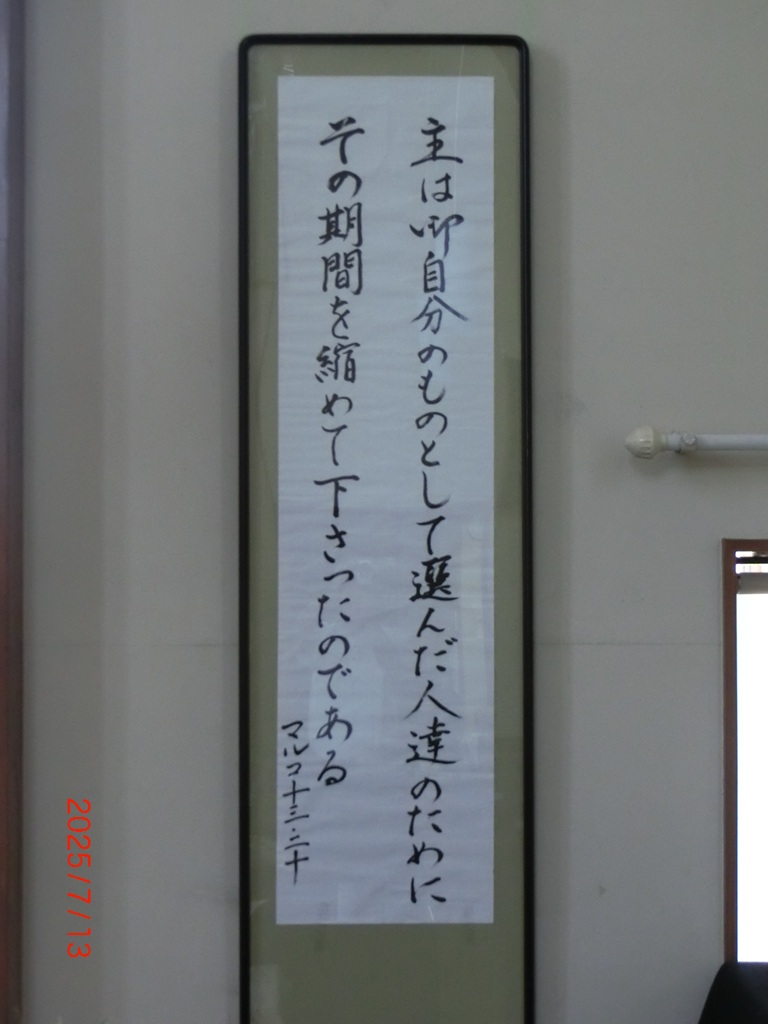 主は御自分のものとして選んだ人達のために
その期間を縮めて下さったのである
マルコ十三・二十
2025/7/13